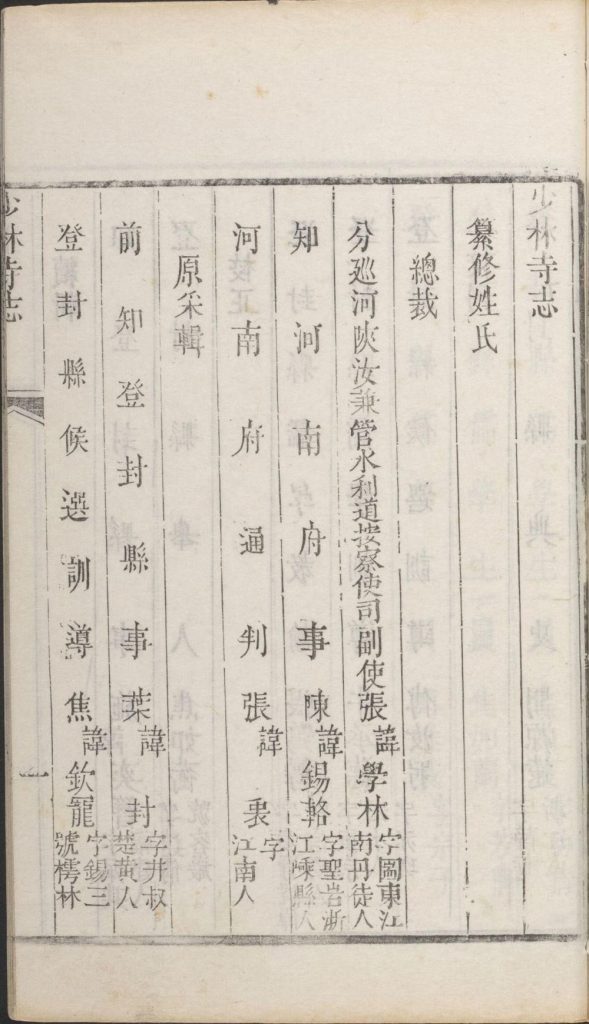 少林寺志
纂修姓氏
總裁
分廵河陝汝兼管水利道按察使司副使張諱學林字圖東江南丹徒人
知河南府事陳諱錫輅字聖岩浙江嵊縣人
河南府通判張諱裴字江南人
原采輯
前知登封縣事葉諱封字井叔楚黃人
登封縣候選訓導焦諱欽寵字錫三號樗林
少林寺志
一